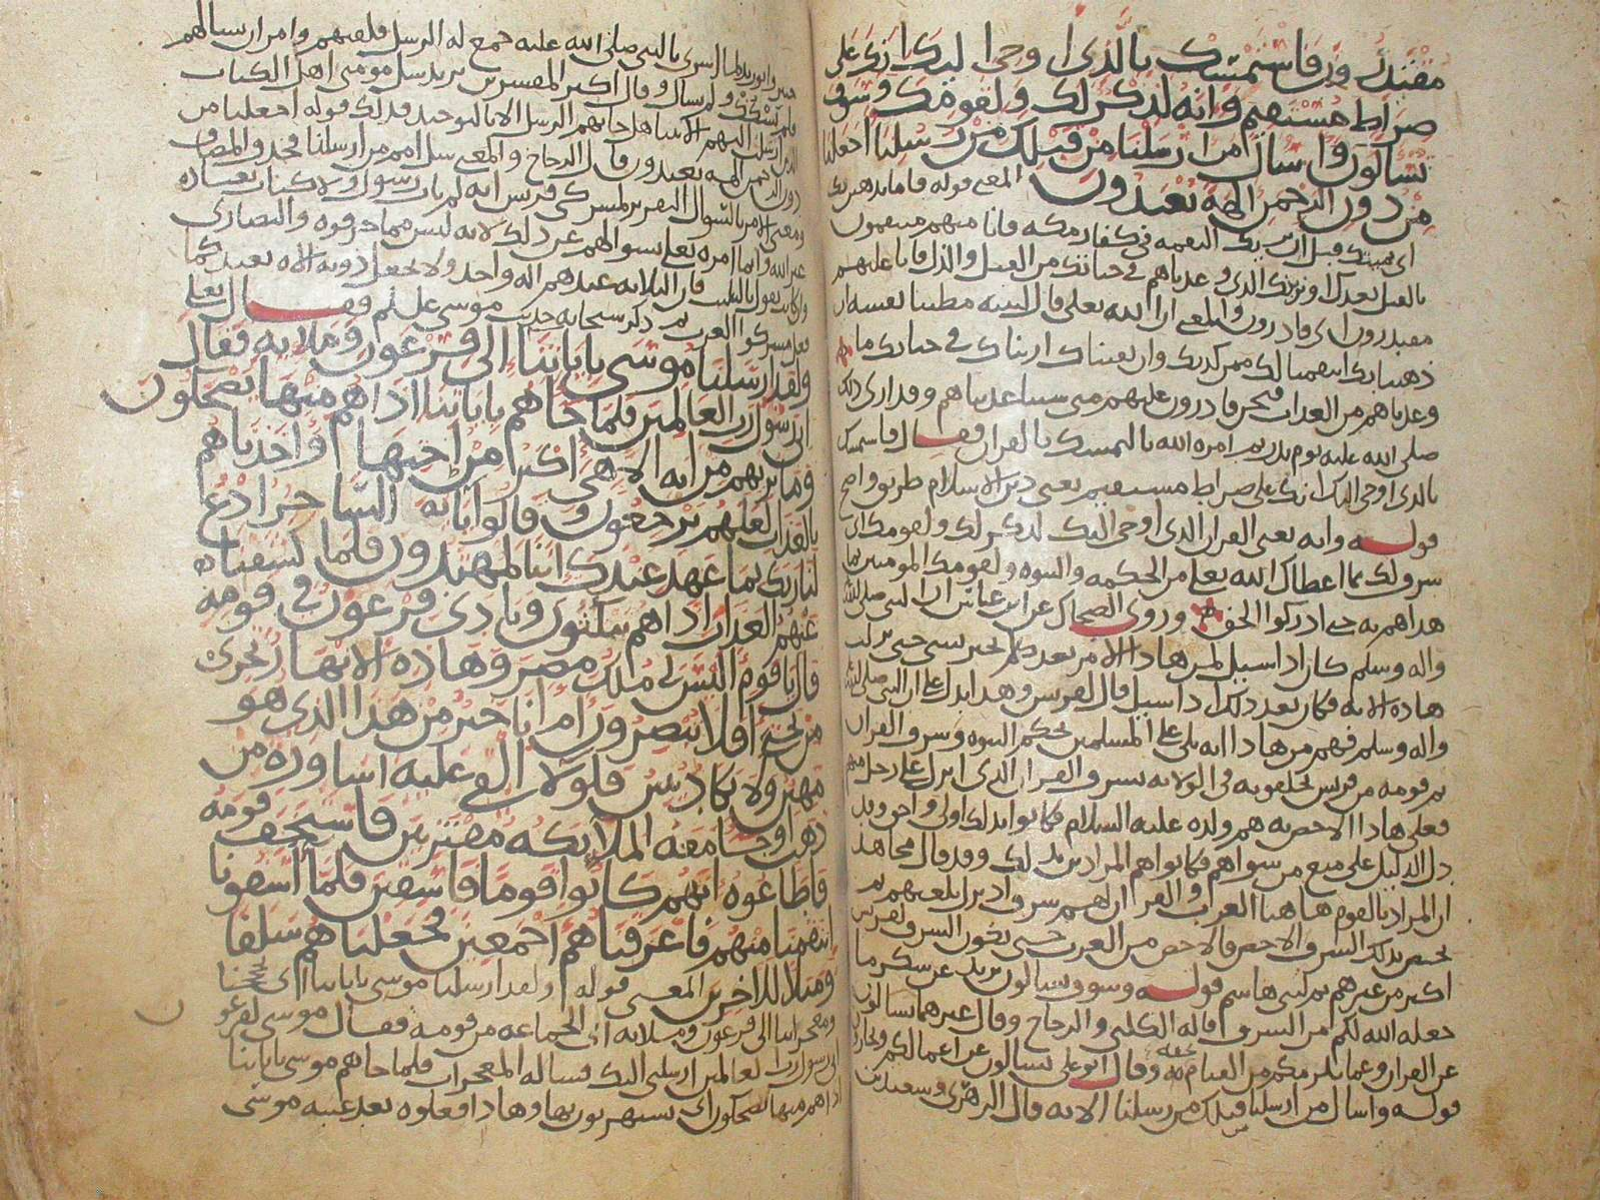 مقتدرون فاستمسك بالذي اوحي اليك انك على
صراط مستقيم وانه لذكر لك ولقومك وسوف
تسالون واسال من ارسلنا من قبلك من رسلنا اجعلنا
من دون الرحمن الهة يعبدون المعنى قوله فاما نذهبن بك
اي نميتك قبل ان نريك النقمه في كفار مكه فانا منهم منتقمون
بالقتل بعدك او نرينك الذي وعدناهم في حياتك من القتل والذل فانا عليهم
مقتدرون اي قادرون والمعنى ان الله تعالى قال لنبيه مطيبا نفسه ان
ذهبنا بك انتقمنا لك ممن كذبك وان بقيناك اريناك في حياتك ما
وعدناهم من العذاب فنحن قادرون عليهم متى شينا عذبناهم وقد ارى ذلك
صلى الله عليه يوم بدر ثم امره الله بالتمسك بالقران فقال فاستمسك
بالذي اوحي اليك انك على صراط مستقيم يعني دين الاسلام طريق واضح
قوله وانه يعني القران الذي اوحي اليك لذكر لك ولقومك اي
شرف لك بما اعطاك الله تعالى من الحكمه والنبوه ولقومك المومنين بما
هداهم به حتى ادركوا الحق وروى الضحاك عن ابن عباس ان النبي صلى الله
واله وسلم كان اذا سيل لمن هاذا الامر بعدك لم يخبر بشي حتى نزلت
هاذه الايه فكان بعد ذلك اذا سيل قال لقريش وهذا يدل على ان النبي صلى الله
واله وسلم فهم من هاذا انه يلي على المسلمين بحكم النبوه وشرف القران
ثم قومه من قريش يخلفونه في الولايه بشرف القران الذي انزل على رجل منهم
فعلى هاذا الاخص به هم ولده عليه السلام فكانوا بذلك اولى واحق وقد
دل الدليل على منع من سواهم فكانوا هم المرادين بذلك وقد قال مجاهد
ان المراد بالقوم هاهنا العرب والقران لهم شرف اذ نزل بلغتهم ثم
يختص بذلك الشرف الاخص فالاخص من العرب حتى يكون الشرف لقريش
اكثر من غيرهم ثم لبني هاشم قوله وسوف تسالون يريد عن شكر ما
جعله الله لكم من الشرف قاله الكلبي والزجاج وقال غيرهما تسالون
عن القران وعما يلزمكم من القيام بحقه وقال ابو علي تسالون عن اعمالكم
قوله واسال من ارسلنا قبلك من رسلنا الايه قال الزهري وسعيد بن
جبير وابن زيد لما اسري بالنبي صلى الله عليه جمع له الرسل فلقيهم وامر ان يسالهم
فلم يشكك ولم يسال وقال اكثر المفسرين يريد سل مومني اهل الكتاب
الذين ارسلت اليهم الانبيا هل جاتهم الرسل الا بالتوحيد فذلك قوله اجعلنا من
دون الرحمن الهه يعبدون قال الزجاج والمعنى سل امم من ارسلنا فحذف المضاف
ومعنى الامر بالسوال التقرير لمشركي قريش انه لم يات رسول ولا كتاب بعباده
غير الله وانما امره تعالى بسوالهم عن ذلك لانه ليس مما حرفوه والنصارى
وان كانت تقول بالتثليث فان الثلاثه عندهم اله واحد ولا تجعل دونه الاه يعبد كما
يفعل مشركوا العرب ثم ذكر سبحانه حديث موسى عليلم فقال تعالى
ولقد ارسلنا موسى باياتنا الى فرعون وملايه فقال
اني رسول رب العالمين فلما جاهم باياتنا اذا هم منها يضحكون
وما نريهم من ايه الا هي اكبر من اختها واخذناهم
بالعذاب لعلهم يرجعون وقالوا يا ايه الساحر ادع
لنا ربك بما عهد عندك اننا لمهتدون فلما كشفنا
عنهم العذاب اذا هم ينكثون ونادى فرعون في قومه
قال يا قوم اليس لي ملك مصر وهاذه الانهار تجري
من تحتي افلا تبصرون ام انا خير من هذا الذي هو
مهين ولا يكاد يبين فلولا القي عليه اساوره من
ذهب او جا معه الملايكه مقترنين فاستخف قومه
فاطاعوه انهم كانوا قوما فاسقين فلما اسفونا
انتقمنا منهم فاغرقناهم اجمعين فجعلناهم سلفا
ومثلا للاخرين المعنى قوله ولقد ارسلنا موسى باياتنا اي بحججنا
ومعجزاتنا الى فرعون وملايه اي الجماعه من قومه فقال موسى لفرعون
اني رسول رب العالمين ارسلني اليك فساله المعجزات فلما جاهم موسى باياتنا
اذا هم منها يضحكون اي يستهزون بها وهاذا فعلوه بعد غيبه موسى